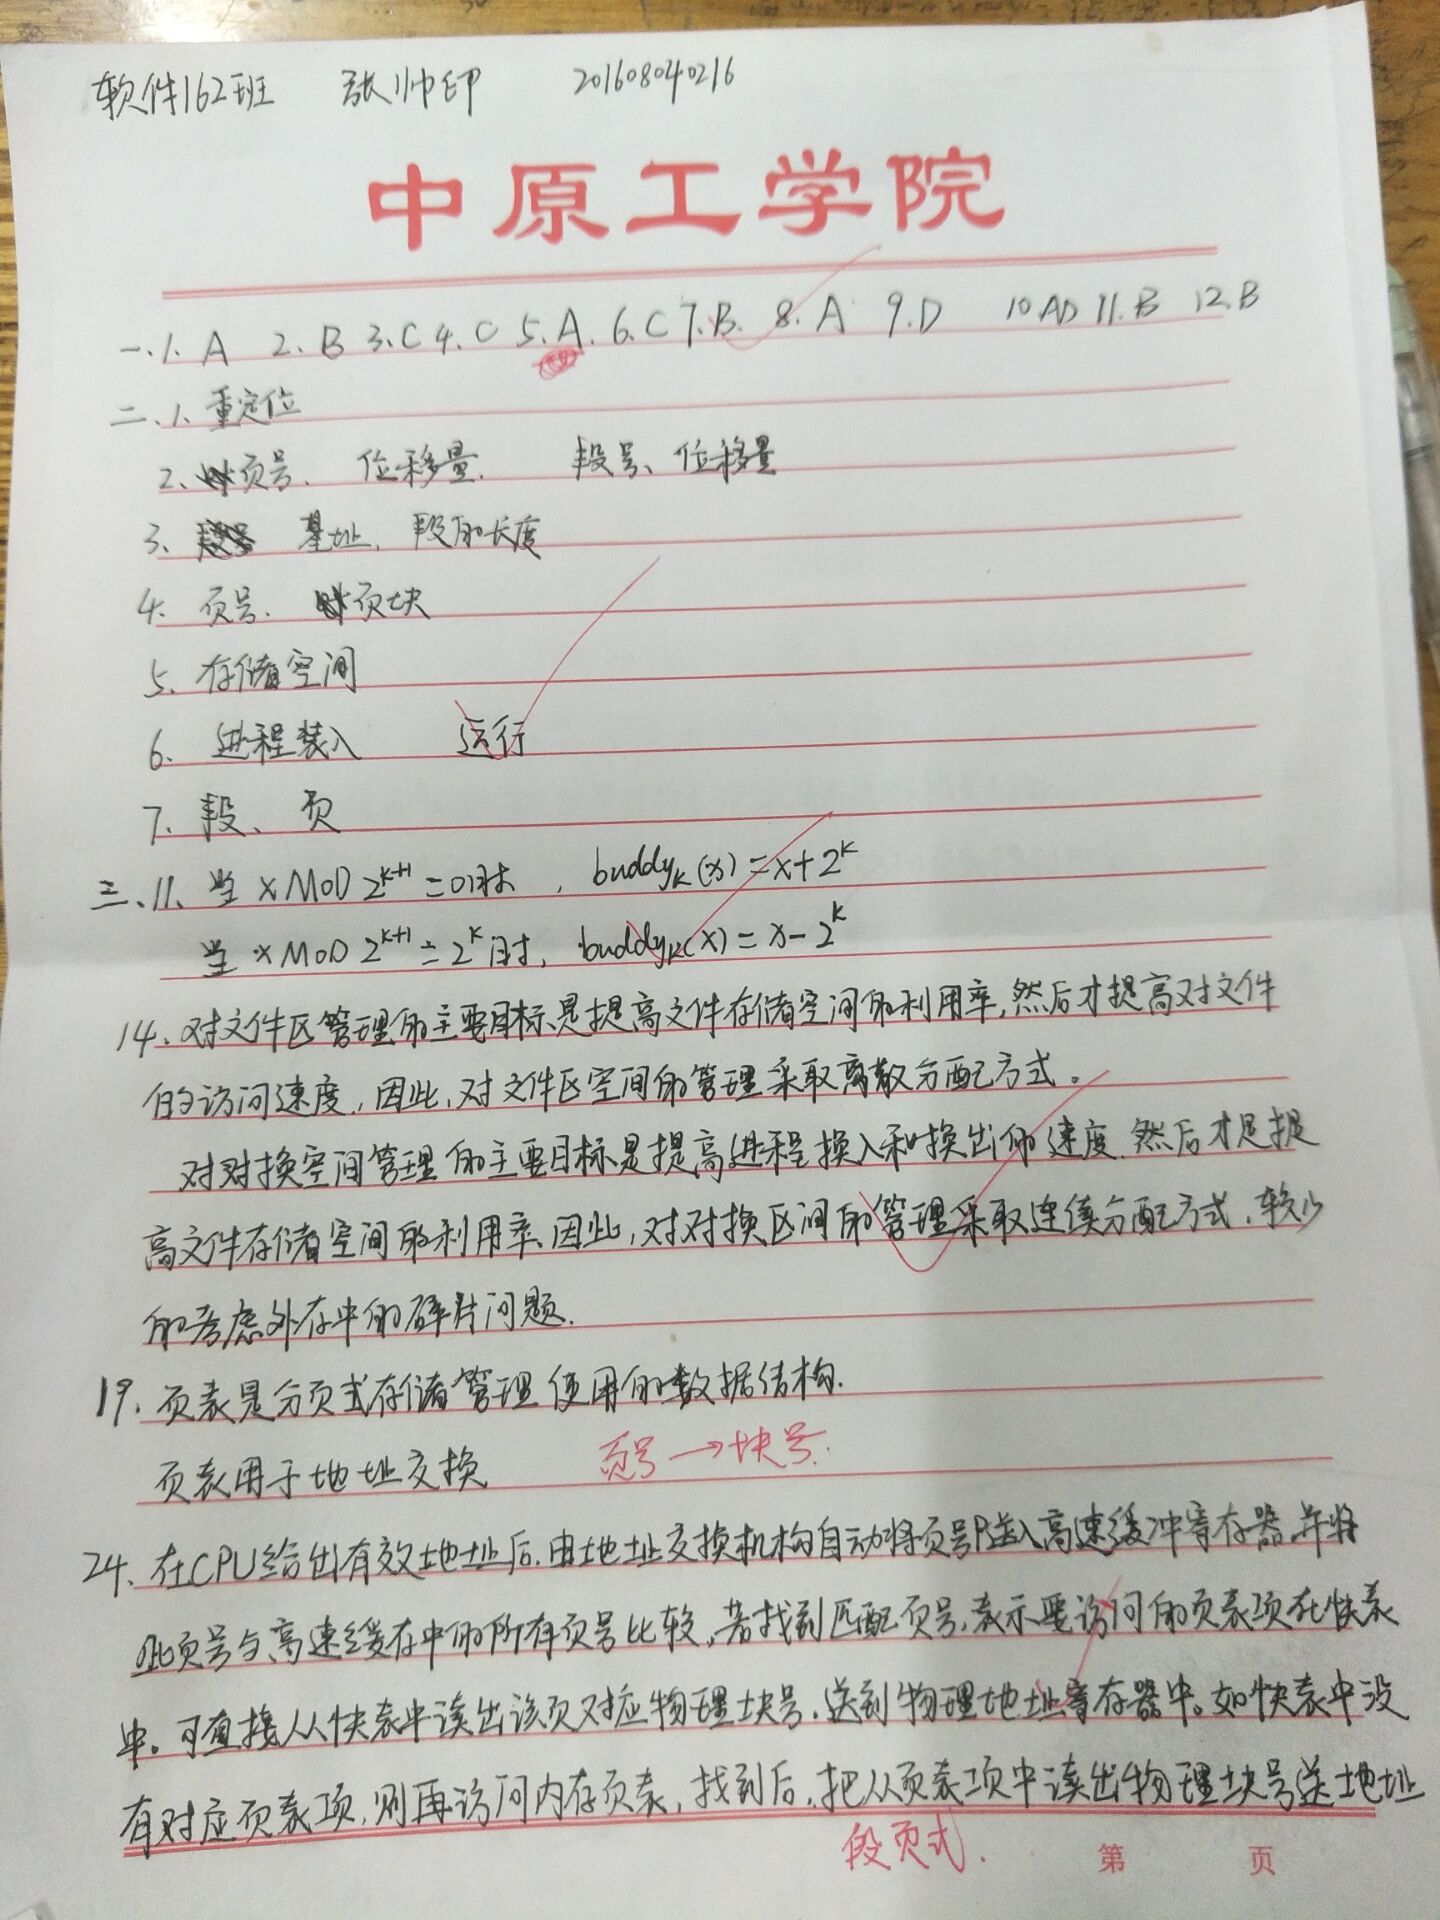 软件162班 张帅印 201608040216
中原工学院
一.1.A 2.B 3.C 4.C 5.A. 6.C 7.B. 8.A 9.D 10 AD 11.B 12.B
二、1.重定位
2、页号. 位移量. 段号、位移量
3、基址. 段的长度
4. 页号. 页块
5、存储空间
6. 进程装入 运行
7. 段、页
三、11. 当 x MOD 2^{k+1} = 0时, buddy_k(x) = x + 2^k
当 x MOD 2^{k+1} = 2^k 时, buddy_k(x) = x - 2^k
14、对文件区管理的主要目标是提高文件存储空间的利用率,然后才提高对文件
的访问速度,因此,对文件区空间的管理采取离散分配方式。
对对换空间管理的主要目标是提高进程换入和换出的速度.然后才是提
高文件存储空间的利用率.因此,对对换区间的管理采取连续分配方式,较少
的考虑外存中的碎片问题.
19.页表是分页式存储管理使用的数据结构.
页表用于地址交换 页号→块号.
24、在CPU给出有效地址后.由地址交换机构自动将页号P送入高速缓冲寄存器.并将
此页号与高速缓存中的所有页号比较,若找到匹配页号,表示要访问的页表项在快表
中。可直接从快表中读出该页对应物理块号,送到物理地址寄存器中。如快表中没
有对应页表项,则再访问内存页表,找到后,把从页表项中读出物理块号送地址
段页式.
第 页